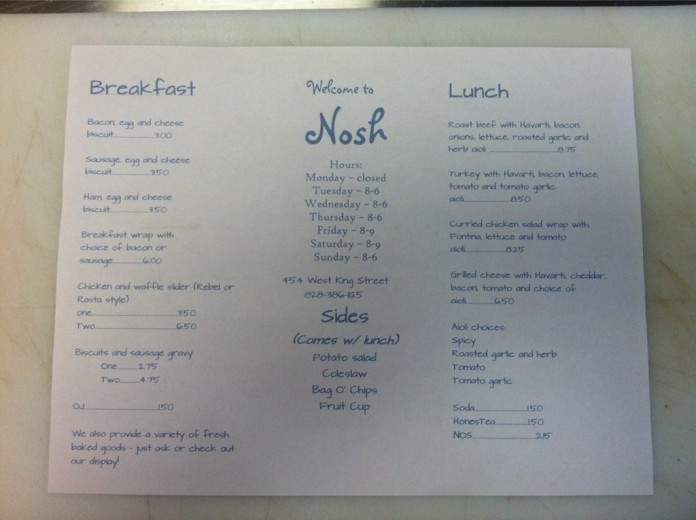 Breakfast
Bacon, egg and cheese
biscuit...............3.00
Sausage, egg and cheese
biscuit...............3.50
Ham, egg and cheese
biscuit...............3.50
Breakfast wrap with
choice of bacon or
sausage...........6.00
Chicken and waffle slider (Rebel or
Rasta style)
one...............................3.50
Two..............................6.50
Biscuits and sausage gravy
One........2.75
Two.......4.75
OJ...........................1.50
We also provide a variety of fresh
baked goods - just ask or check out
our display!
Welcome to
Nosh
Hours:
Monday - closed
Tuesday - 8-6
Wednesday - 8-6
Thursday - 8-6
Friday - 8-9
Saturday - 8-9
Sunday - 8-6
454 West King Street
Sides
(Comes w/ lunch)
Potato salad
Coleslaw
Bag O' Chips
Fruit Cup
Lunch
Roast beef with Havarti, bacon,
onions, lettuce, roasted garlic and
herb aioli .........................8.75
Turkey with Havarti, bacon, lettuce,
tomato and tomato garlic
aioli....................8.50
Curried chicken salad wrap with
Fontina, lettuce and tomato
aioli...............8.25
Grilled cheese with Havarti, cheddar,
bacon, tomato and choice of
aioli..........6.50
Aioli choices:
Spicy
Roasted garlic and herb
Tomato
Tomato garlic
Soda...................1.50
HonesTea...........1.50
NOS........................2.15